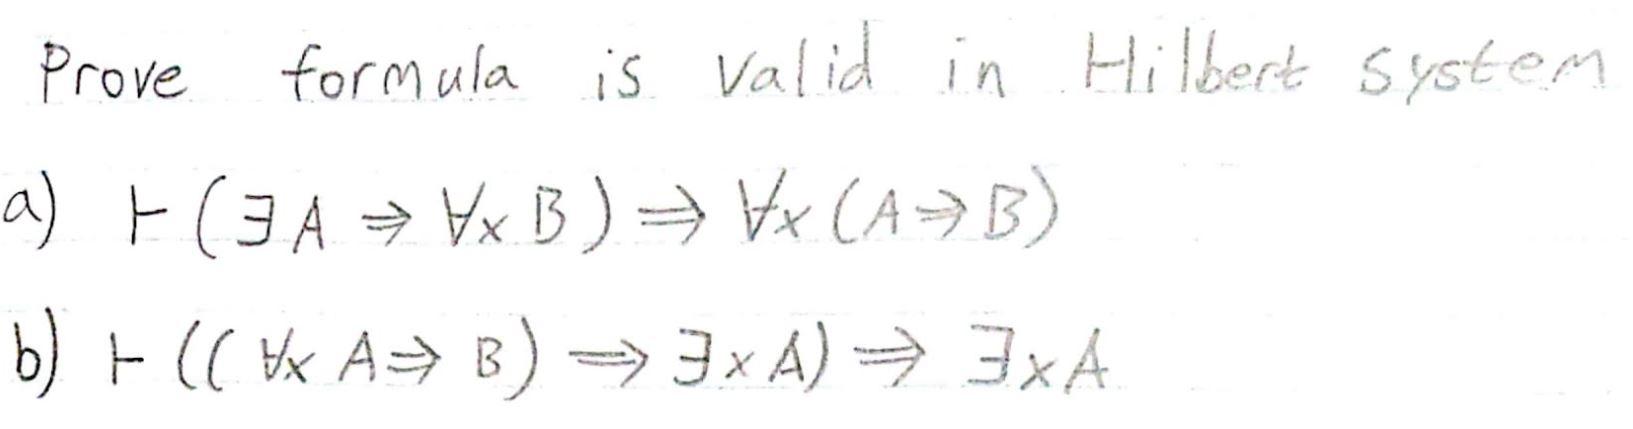 Prove formula is valid in Hilbert system
a) ⊢ (∃A ⇒ ∀x B) ⇒ ∀x (A ⇒ B)
b) ⊢ ((∀x A ⇒ B) ⇒ ∃x A) ⇒ ∃x A